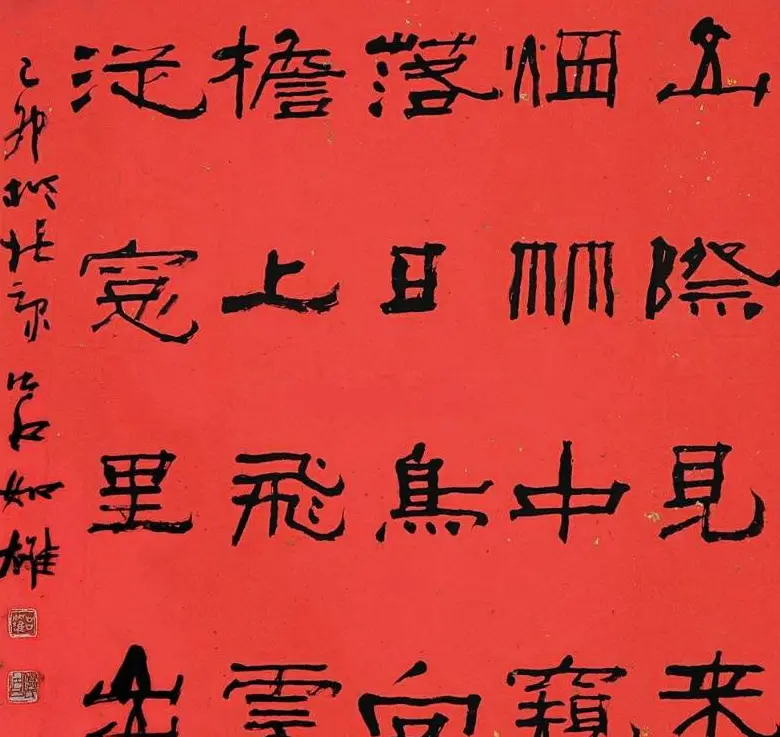 山際見来
烟竹中窺
落日鳥向
檐上飛雲
從窗里出
己卯於北京 吕如雄